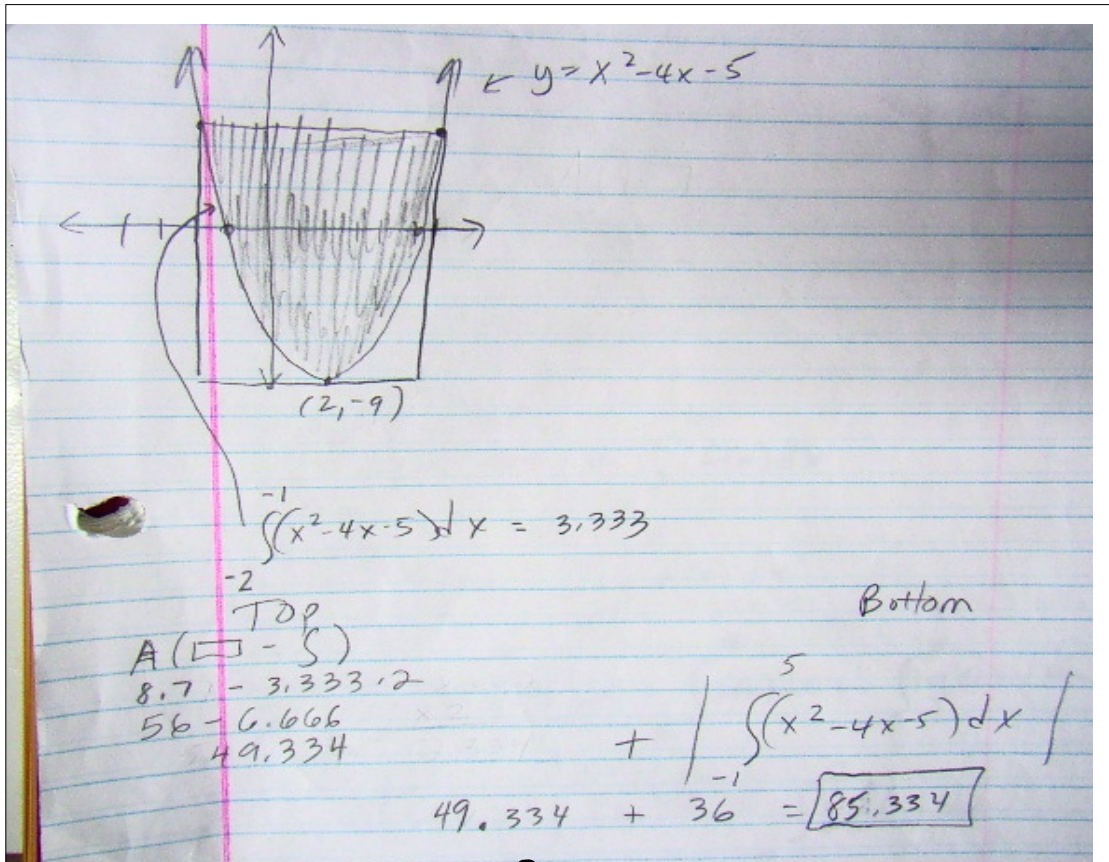 y = x² - 4x - 5
(2, -9)
∫₋₂⁻¹ (x² - 4x - 5) dx = 3.333
TOP
A (▭ - ∫)
8.7 - 3.333.2
56 - 6.666
49.334
Bottom
+ | ∫₋₁⁵ (x² - 4x - 5) dx |
49.334 + 36 = 85.334